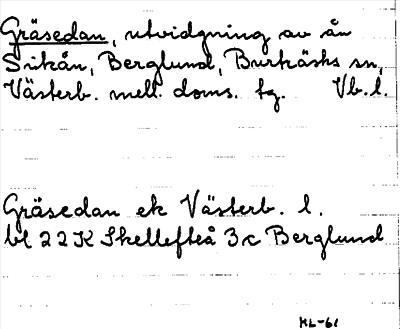 Gräsedan, utvidgning av ån
Sikån, Berglund, Burträsks sn,
Västerb. mell. doms. tg. Vb.l.
Gräsedan ek Västerb. l.
bl 22K Skellefteå 3c Berglund
KL-61